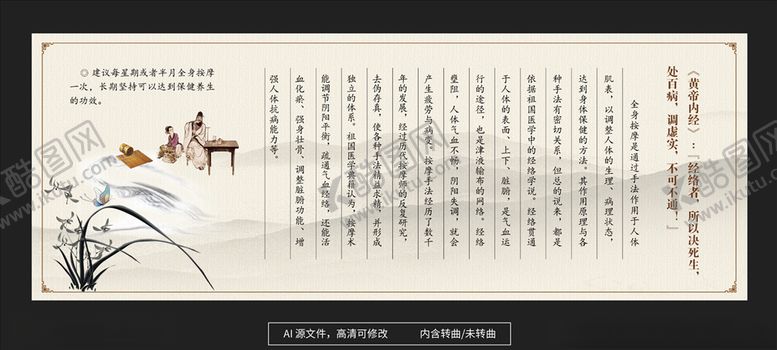 《黄帝内经》：『经络者，所以决死生，
处百病，调虚实，不可不通！』
全身按摩是通过手法作用于人体
肌表，以调整人体的生理、病理状态，
达到身体保健的方法。其作用原理与各
种手法有密切关系，但总的说来，都是
依据祖国医学中的经络学说。经络贯通
于人体的表面、上下、脏腑，是气血运
行的途径，也是津液输布的网络。经络
壅阻，人体气血不畅，阴阳失调，就会
产生疲劳与病变。按摩手法经历了数千
年的发展，经过历代按摩师的反复研究，
去伪存真，使各种手法精益求精，并形成
独立的体系。祖国医学典籍认为，按摩术
能调节阴阳平衡，疏通气血经络，还能活
血化瘀、强身壮骨、调整脏腑功能、增
强人体抗病能力等。
◎建议每星期或者半月全身按摩
一次，长期坚持可以达到保健养生
的功效。
AI 源文件，高清可修改 内含转曲/未转曲